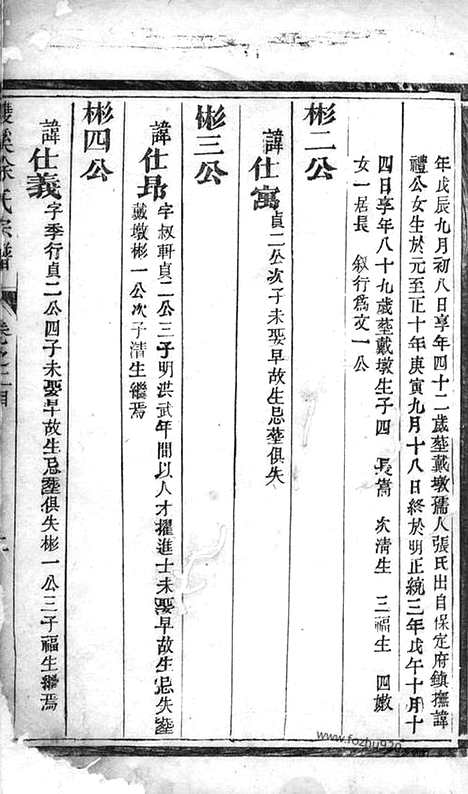 年戊辰九月初八日享年四十二歲塟戴墩孺人張氏出自保定府鎮撫諱
禮公女生於元至正十年庚寅九月十八日終於明正統三年戊午十月十
四日享年八十九歲塟戴墩生子四 長嵩 次清生 三福生 四嫩
女一居長 叙行爲文一公
彬二公
諱仕寓貞二公次子未娶早故生忌塟俱失
彬三公
諱仕昂字叔軒貞二公三子明洪武年間以人才擢進士未娶早故生忌失塟
戴墩彬一公次子清生繼焉
彬四公
諱仕義字季行貞二公四子未娶早故生忌塟俱失彬一公三子福生繼焉
雙溪徐氏宗譜 卷之二
www.fozhu920.com